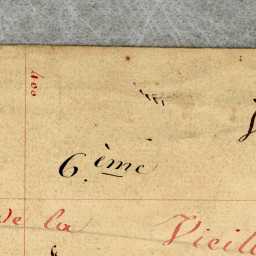 400
6.ème
de la Vieil